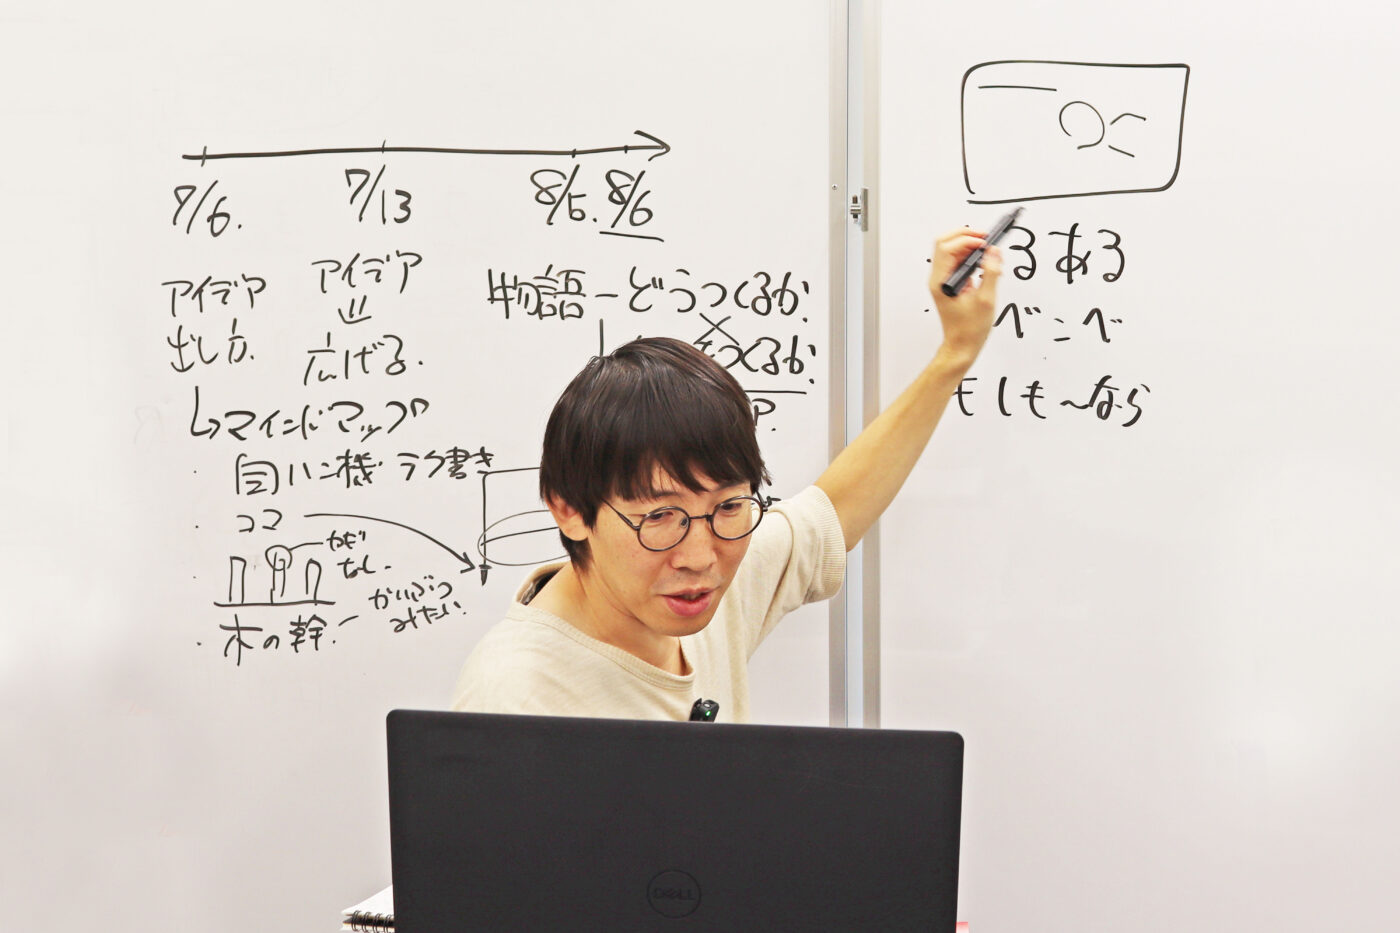 7/6.
7/13
8/5.
8/6
アイデア
出し方.
アイデア
広げる.
物語ーどうつくるか?
つくるか?
P.
↳マインドマップ
・ ラク書き
・ ココ
かぎ
なし.
かいぶつ
みたい.
・ 木の幹.
・ るある
・ べこべ
もしも~なら
DELL